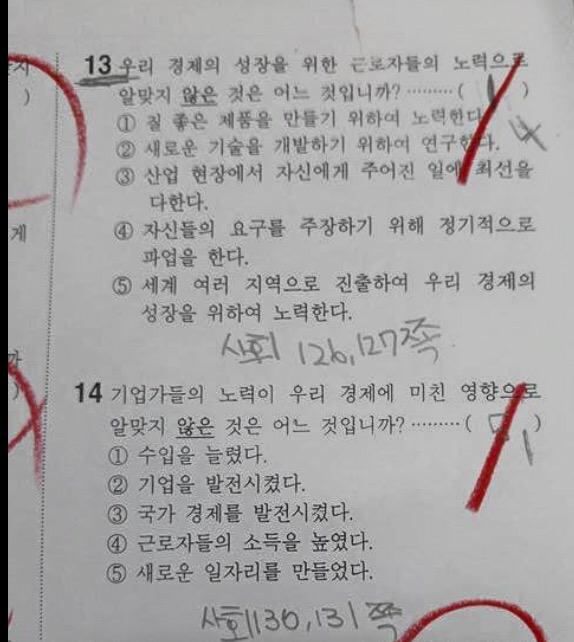 13 우리 경제의 성장을 위한 근로자들의 노력으로
알맞지 않은 것은 어느 것입니까? ········· ( )
4
① 질 좋은 제품을 만들기 위하여 노력한다.
② 새로운 기술을 개발하기 위하여 연구한다.
③ 산업 현장에서 자신에게 주어진 일에 최선을
다한다.
④ 자신들의 요구를 주장하기 위해 정기적으로
파업을 한다.
⑤ 세계 여러 지역으로 진출하여 우리 경제의
성장을 위하여 노력한다.
사회 126, 127쪽
게
14 기업가들의 노력이 우리 경제에 미친 영향으로
알맞지 않은 것은 어느 것입니까? ········· ( )
1
① 수입을 늘렸다.
② 기업을 발전시켰다.
③ 국가 경제를 발전시켰다.
④ 근로자들의 소득을 높였다.
⑤ 새로운 일자리를 만들었다.
사회 130, 131쪽